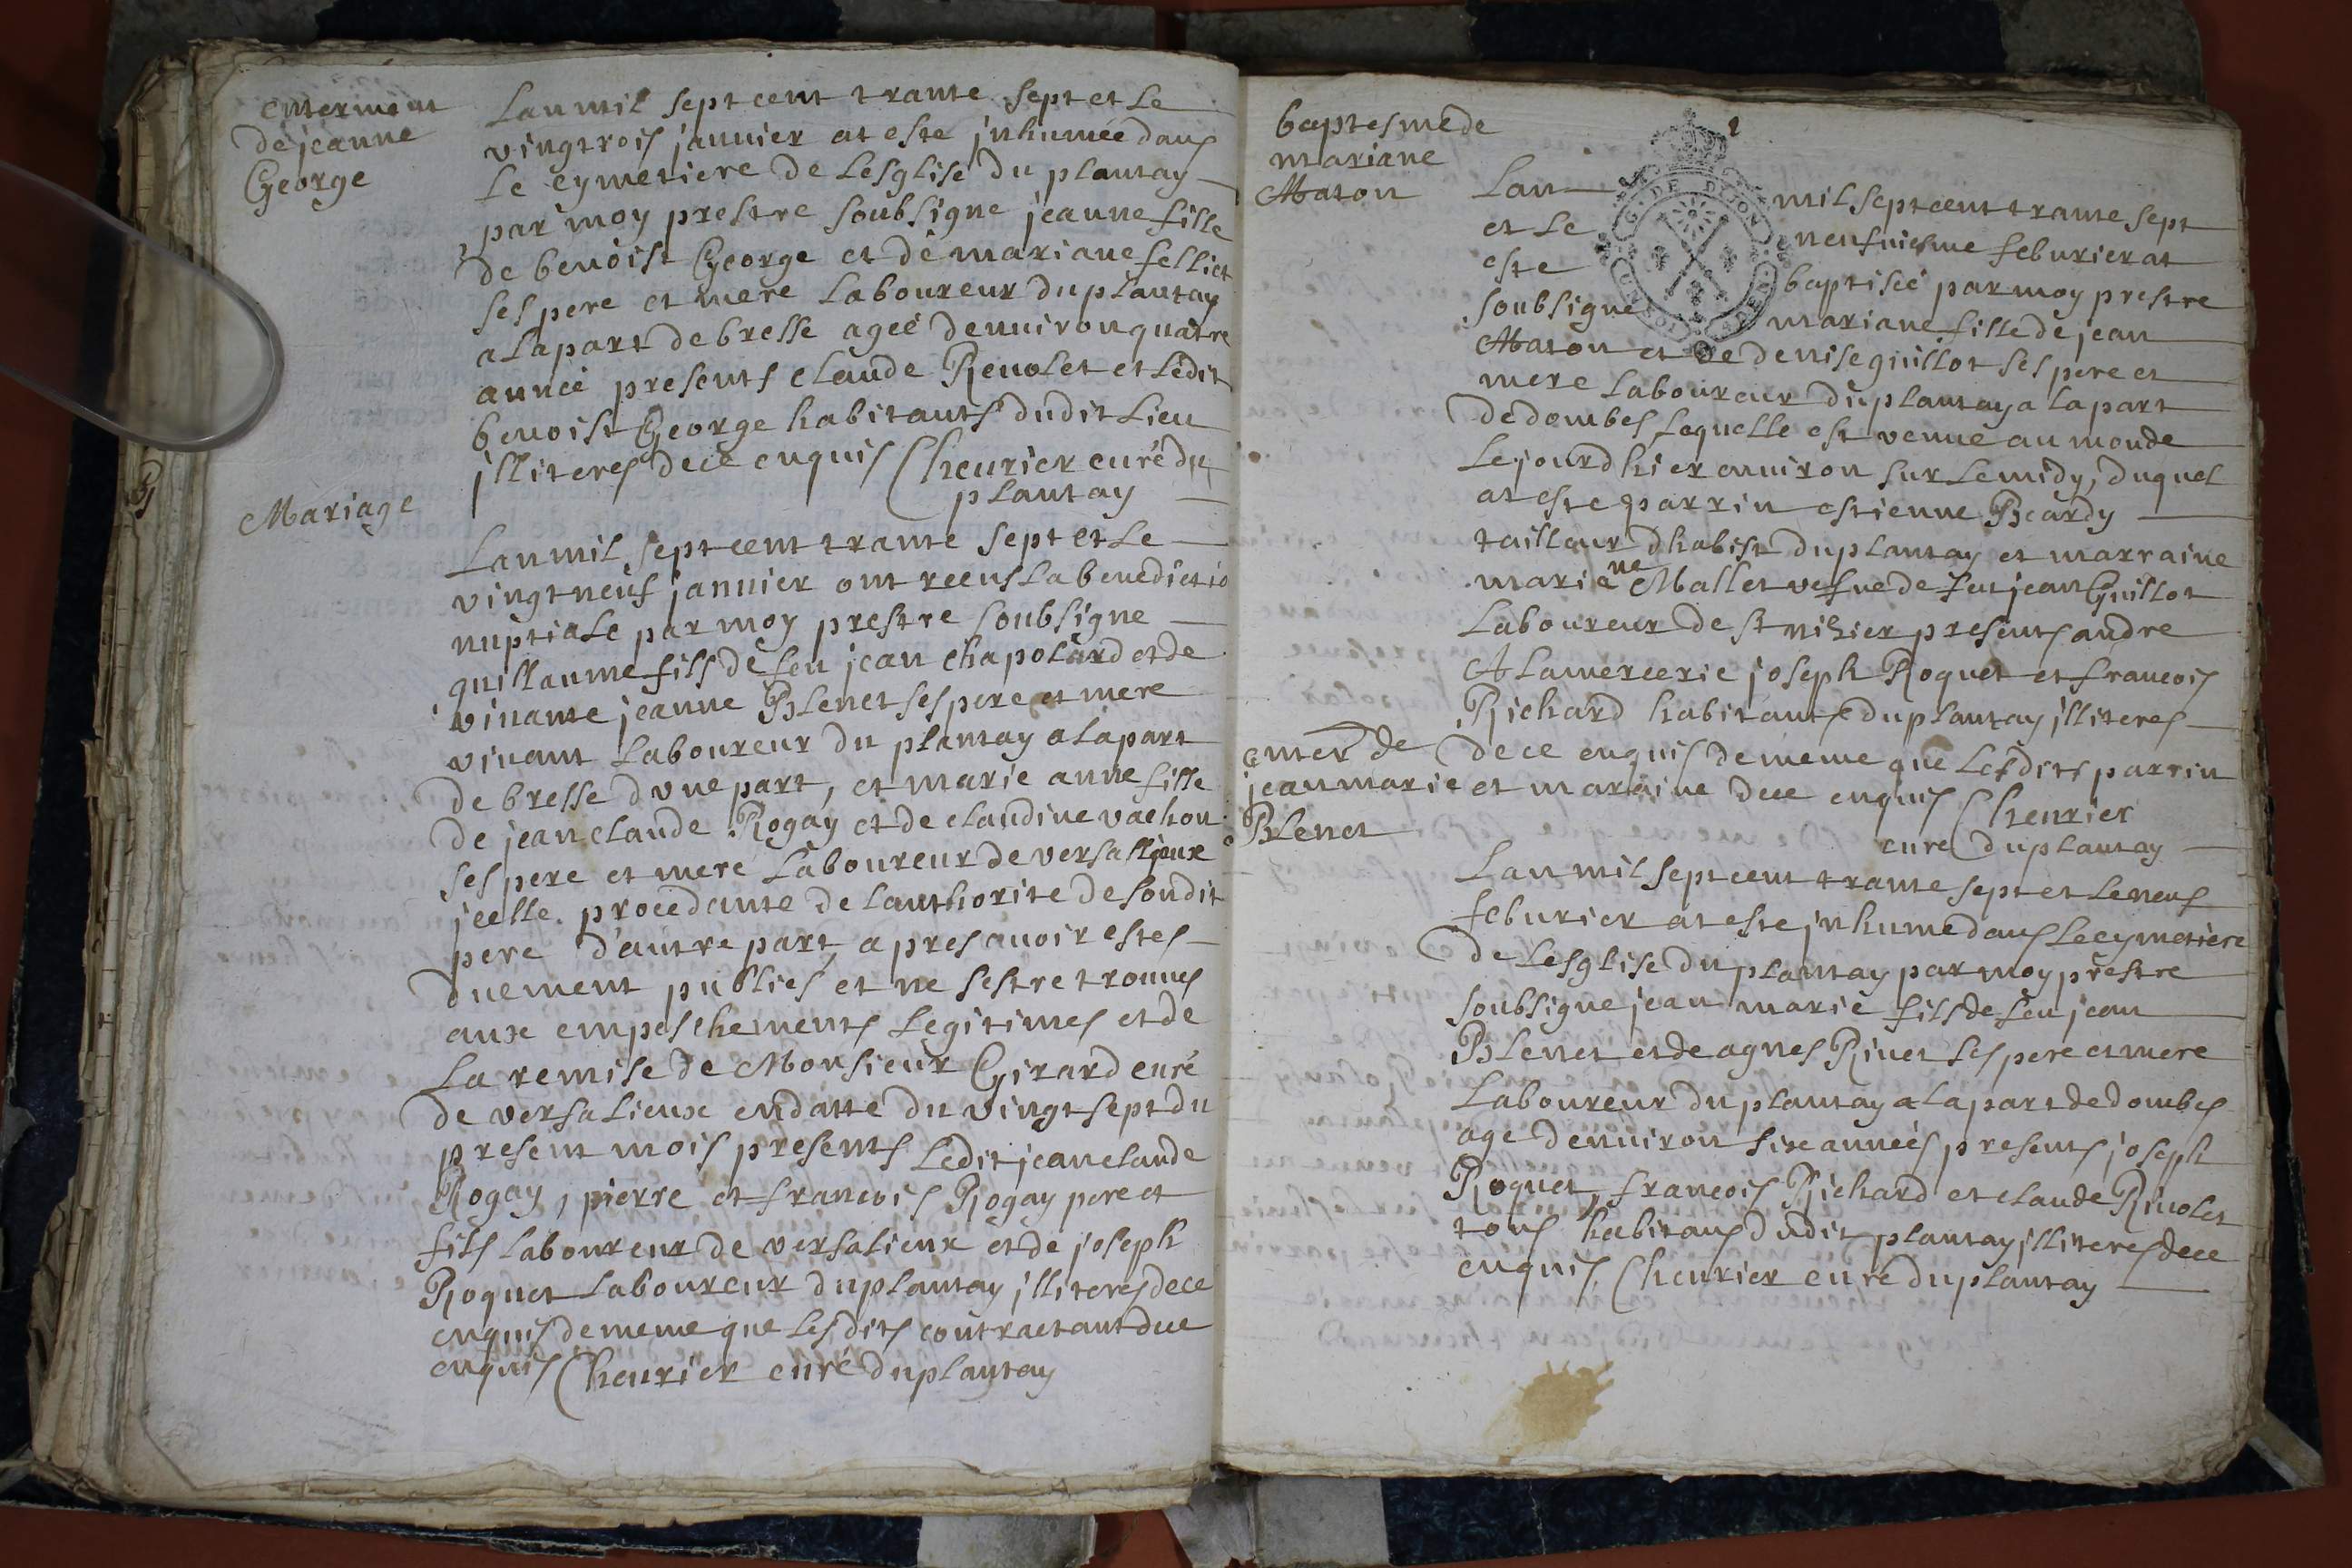 enterment
de jeanne
George
Lan mil sept cent trante sept et le
vingtrois januier at este jnhumée dans
le cymetiere de Lesglise du plantay
par moy prestre soubsigne jeanne fille
de benoist George et de mariane felliet
ses pere et mere Laboureur du plantay
a la part de bresse ageé denuiron quatre
anneé presents claude Reuolet et Ledit
benoist George habitants dudit Lieu
jlliteres dece enquis Cheurier curé du
plantay
Mariage
Lan mil sept cent trante sept et Le
vingt neuf januier ont receus La benedictio
nuptiale par moy prestre soubsigne
guillaume fils de feu jean chapolard et de
viuante jeanne Blenet ses pere et mere
viuant Laboureur du plantay a La part
de bresse dvne part, et marie anne fille
de jean claude Rogay et de claudine vachon
ses pere et mere Laboureur de versallieux
jcelle procedante de Lauthorite de sondit
pere d'autre part, apres auoir estes
duement publies et ne sestre trouues
aux empeschements Legitimes et de
La remise de Monsieur Girard curé
de versalieux endatte du vingt sept du
present mois presents Ledit jean claude
Rogay, pierre et francois Rogay pere et
fils Laboureur de versalieux et de joseph
Roquet Laboureur du plantay jlliteres dece
enquis de meme que Lesdits contractant dece
enquis Cheurier curé du plantay
baptesme de
mariane
Maton
Lan mil sept cent trante sept
et Le neufuiesme feburier at
este baptiseé par moy prestre
soubsigne mariane fille de jean
Maton et de denise guillot ses pere et
mere Laboureur du plantay a La part
de dombes Laquelle est venue au monde
Le jourd hier enuiron sur Le midy, duquel
at este parrin estienne Beardy
tailleur dhabist du plantay et marraine
mariane Mallet vefue de feu jean Guillot
Laboureur de st nizier presents andre
Alamercerie joseph Roquet et francois
Richard habitants du plantay jlliteres
de ce enquis de meme que Lesdits parrin
et maraine dece enquis Cheurier
curé du plantay
enter de
jean marie
Blenet
Lan mil sept cent trante sept et Le neuf
feburier at este jnhume dans Le cymetiere
de Lesglise du plantay par moy prestre
soubsigne jean marie fils de feu jean
Blenet et de agnes Riuet ses pere et mere
Laboureur du plantay a La part de dombes
age denuiron sixe anneés presents joseph
Roquet, francois Richard et claude Riuolet
tous habitans dudit plantay jlliteres dece
enquis Cheurier curé du plantay